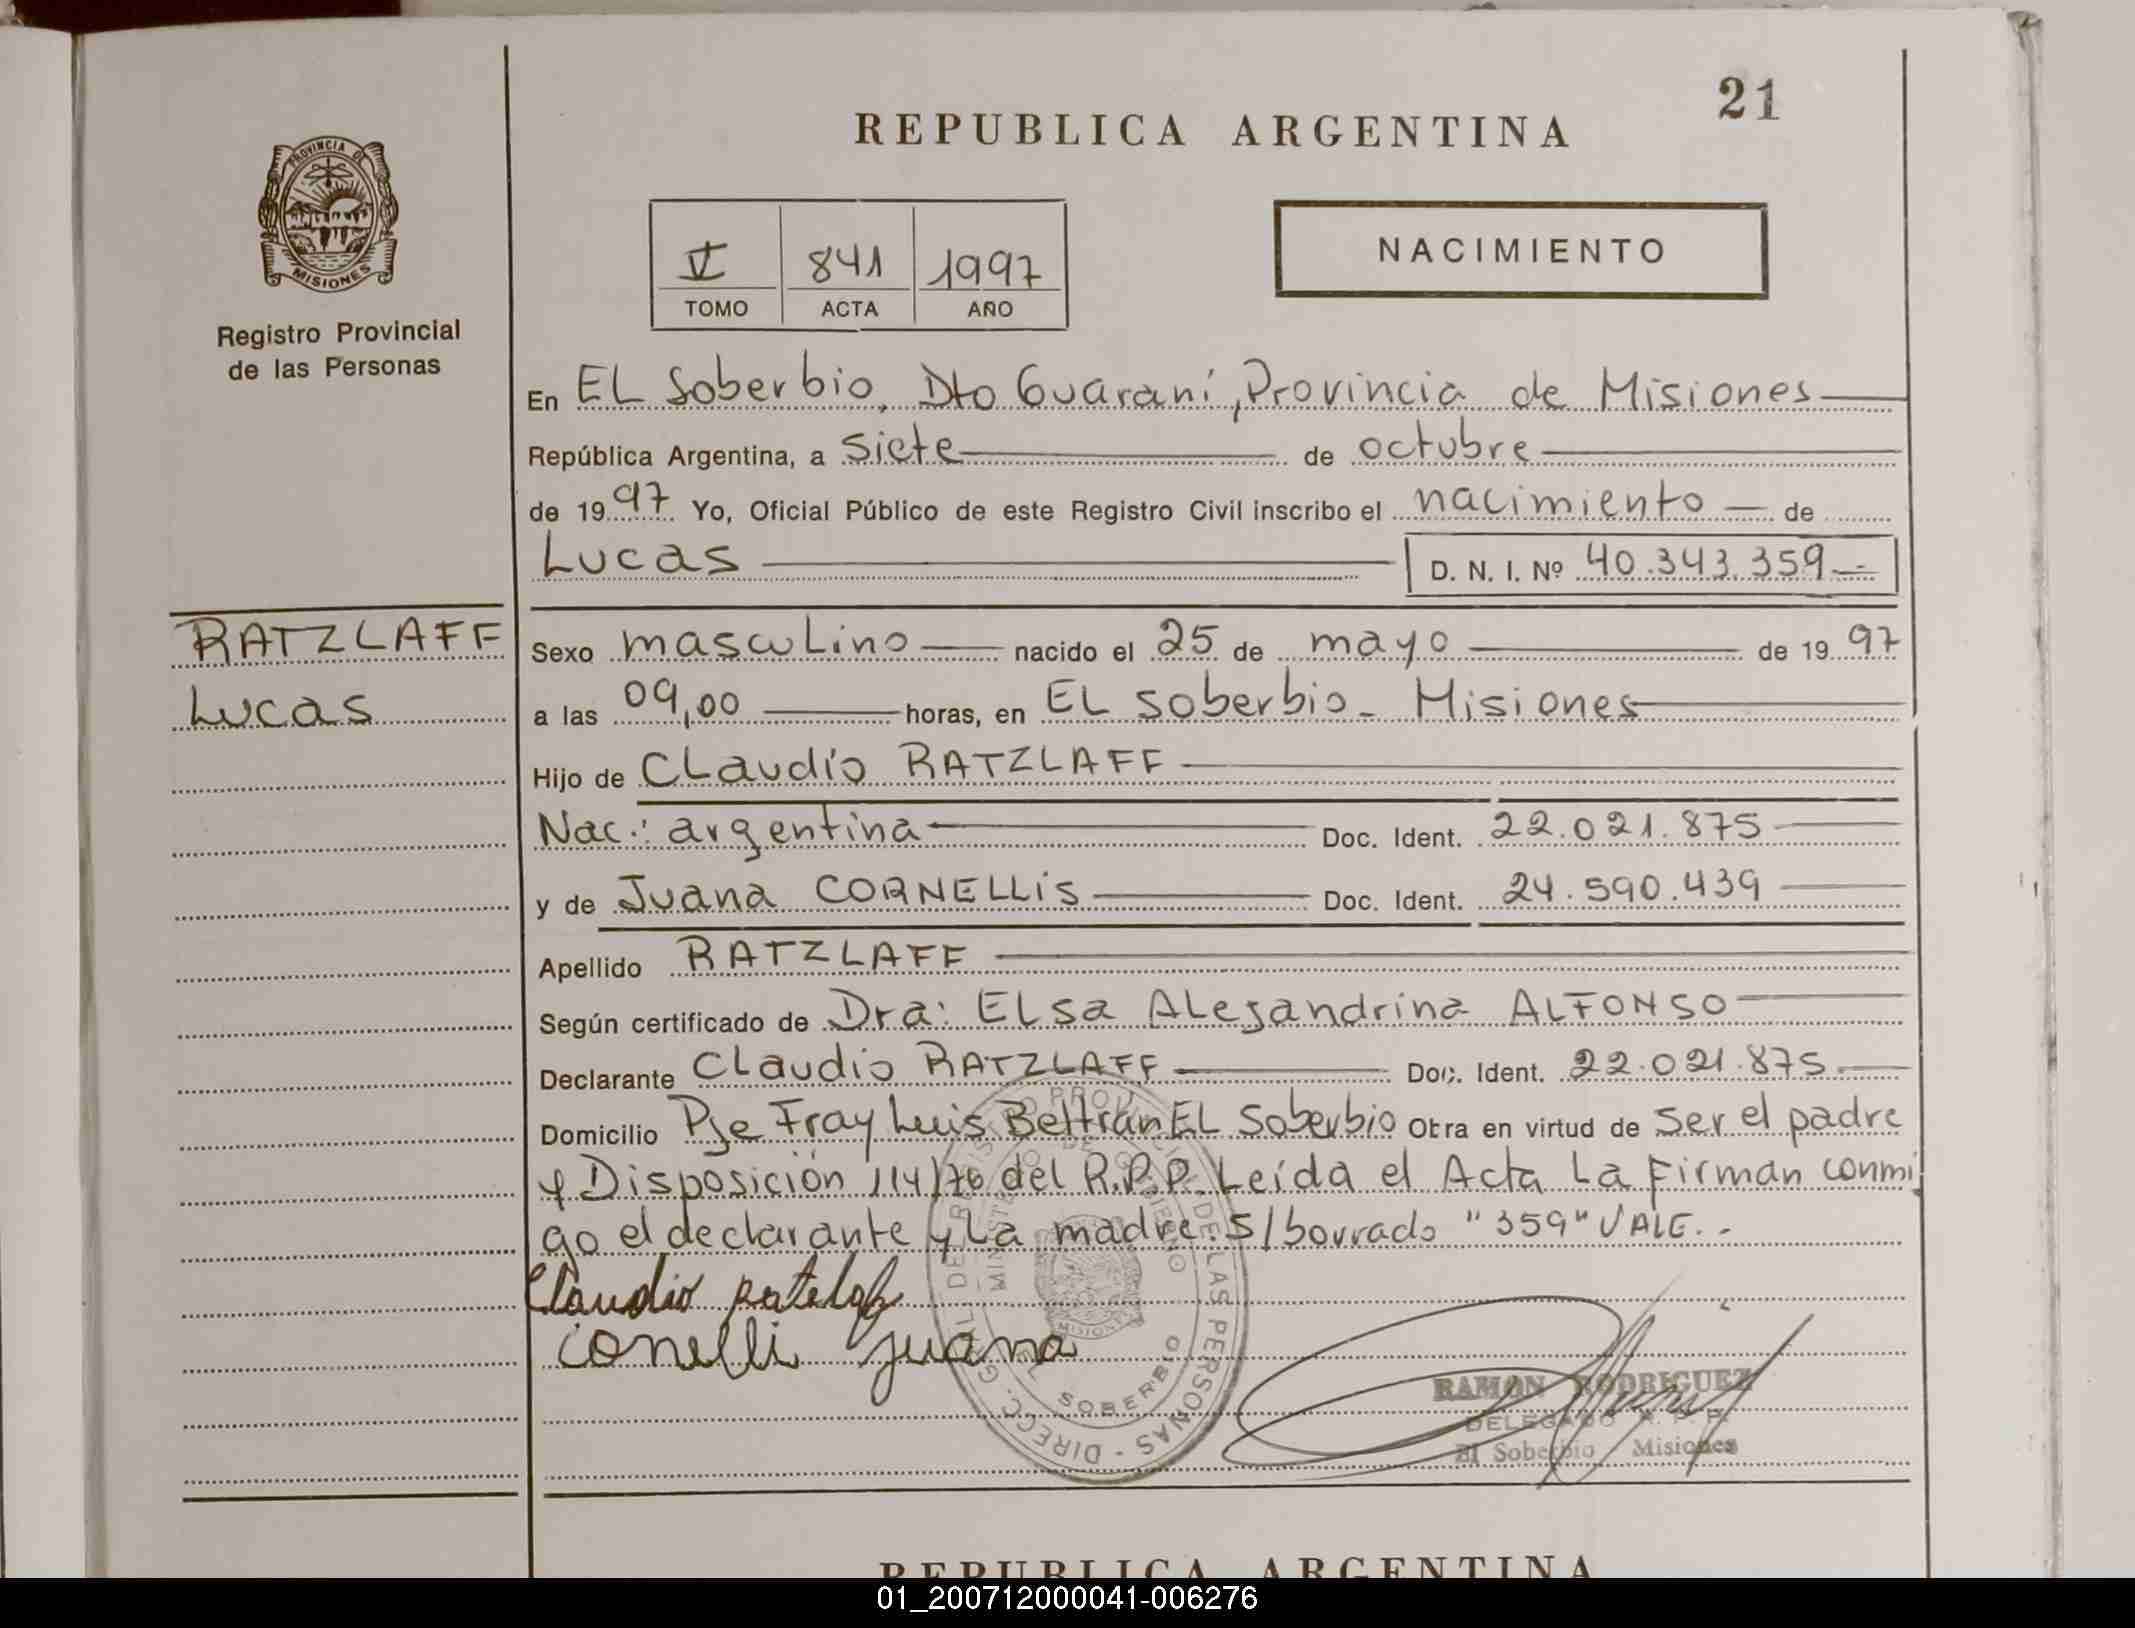 21
REPUBLICA ARGENTINA
PROVINCIA DE
MISIONES
Registro Provincial
de las Personas
V 841 1997
TOMO ACTA AÑO
NACIMIENTO
En EL Soberbio, Dto Guaraní, Provincia de Misiones
República Argentina, a siete de octubre
de 1997 Yo, Oficial Público de este Registro Civil inscribo el nacimiento de
Lucas D. N. I. Nº 40.343.359
RATZLAFF
Lucas
Sexo masculino nacido el 25 de mayo de 1997
a las 09,00 horas, en EL Soberbio - Misiones
Hijo de Claudio RATZLAFF
Nac.: argentina Doc. Ident. 22.021.875
y de Juana CORNELLIS Doc. Ident. 24.590.439
Apellido RATZLAFF
Según certificado de Dra: Elsa Alejandrina ALFONSO
Declarante Claudio RATZLAFF Doc. Ident. 22.021.875
Domicilio Pje Fray Luis Beltrán EL Soberbio Obra en virtud de ser el padre
y Disposición 114/76 del R.P.P. Leída el Acta la firman conmi
go el declarante y la madre. S/borrado "359" VALE.-
Claudio
conelli juana
DIRECC. GRAL. DE REGISTRO PROVINCIAL DE LAS PERSONAS
MINISTERIO DE GOBIERNO
MISIONES
SOBERBIO
RAMON RODRIGUEZ
DELEGADO R. P. P.
El Soberbio Misiones
REPUBLICA ARGENTINA
01_200712000041-006276